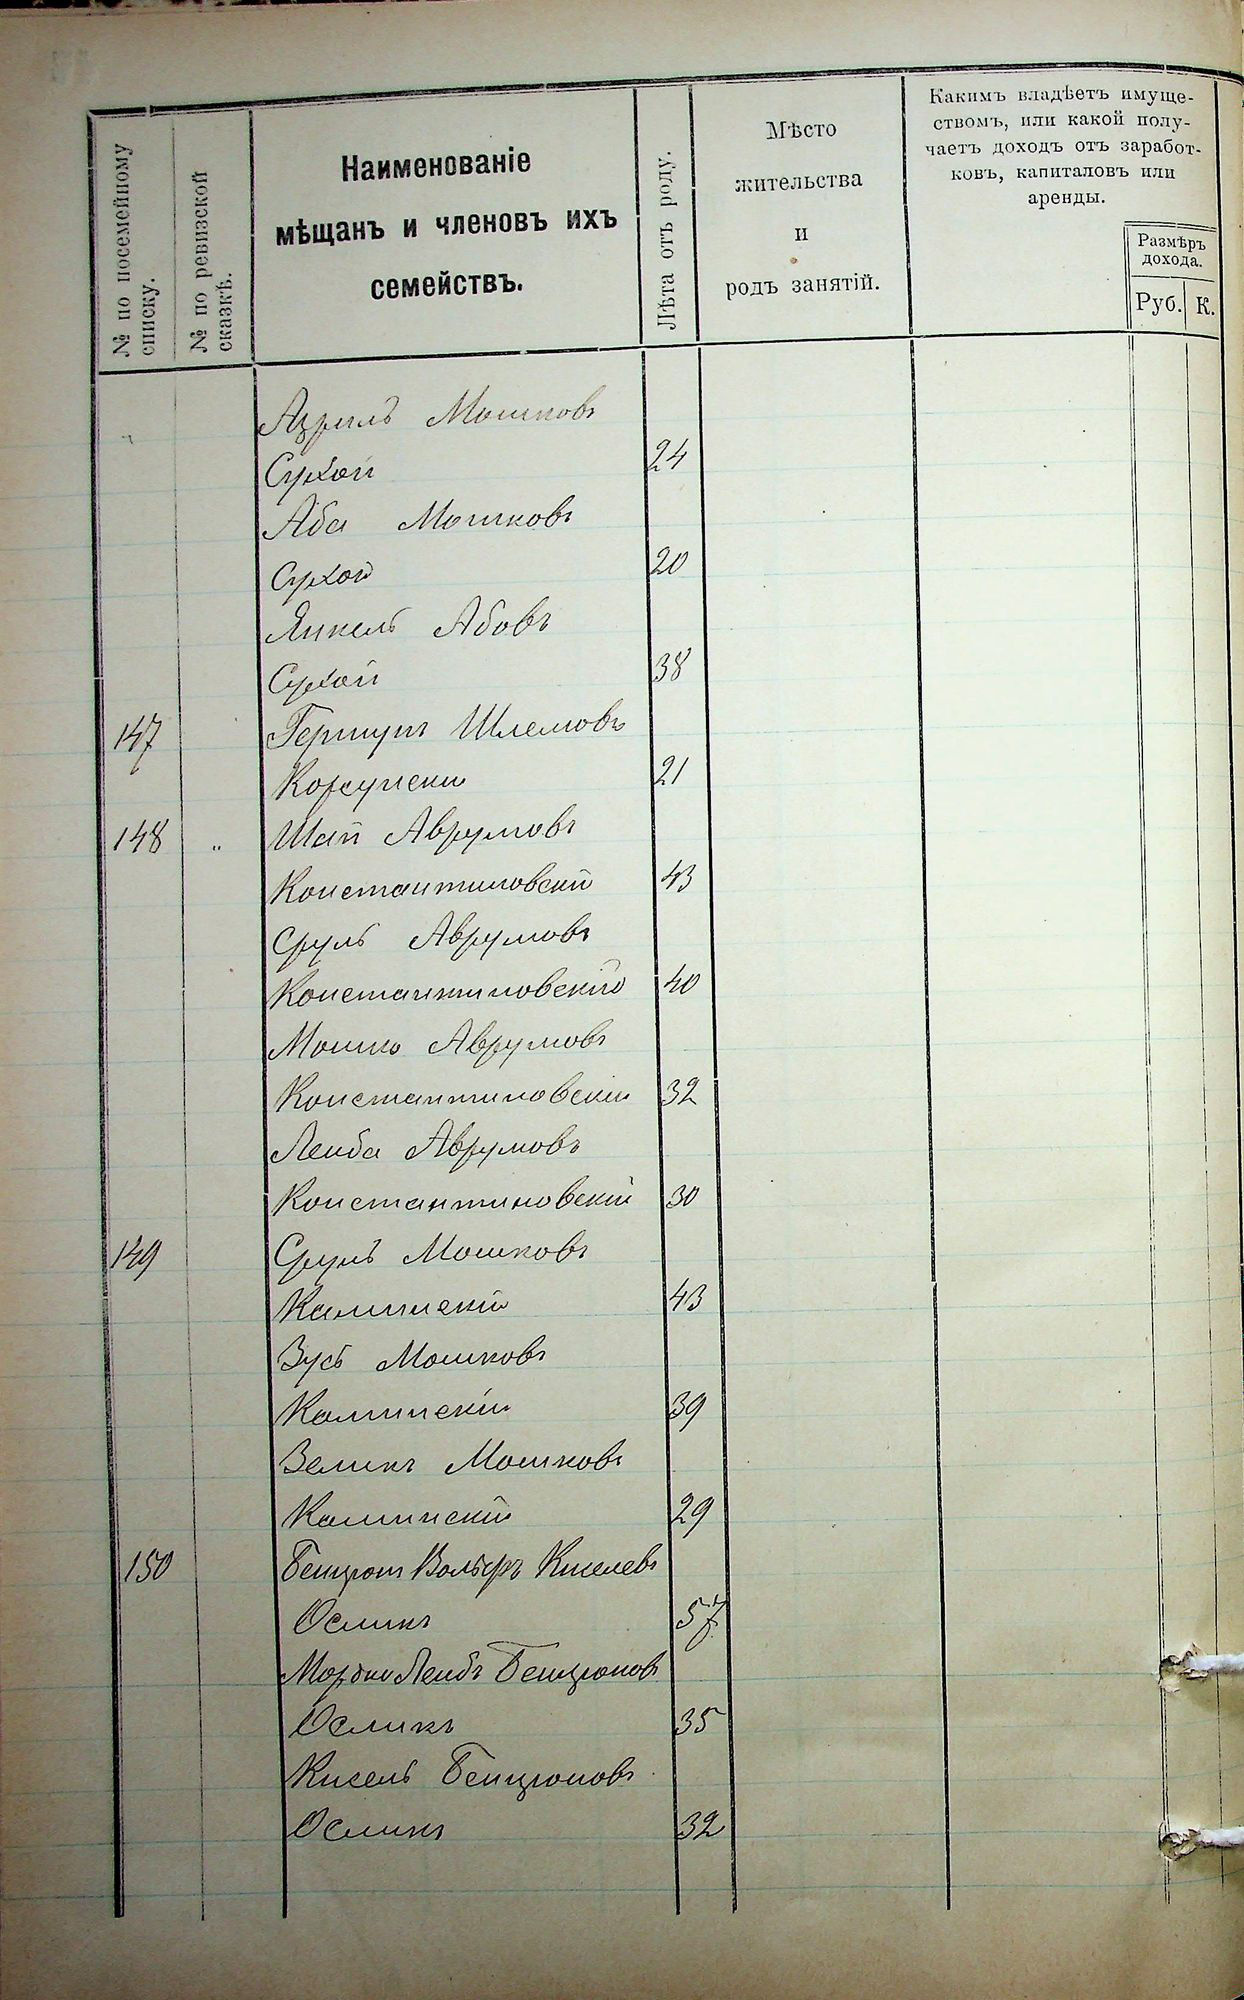 № по посемейному списку.
№ по ревизской сказкѣ.
Наименованіе
мѣщанъ и членовъ ихъ
семействъ.
Лѣта отъ роду.
Мѣсто
жительства
и
родъ занятій.
Какимъ владѣетъ имуще-
ствомъ, или какой полу-
чаетъ доходъ отъ заработ-
ковъ, капиталовъ или
аренды.
Размѣръ
дохода.
Руб. К.
Азриль Мошковъ
Сухой 24
Аба Мошковъ
Сухой 20
Янкель Абовъ
Сухой 38
147 Гершунъ Шлемовъ
Корсунскій 21
148 „ Шай Аврумовъ
Константиновскій 43
Сруль Аврумовъ
Константиновскій 40
Мошко Аврумовъ
Константиновскій 32
Лейба Аврумовъ
Константиновскій 30
149 Сруль Мошковъ
Каминскій 43
Зусь Мошковъ
Каминскій 39
Зеликъ Мошковъ
Каминскій 29
150 Бенционъ Вольфъ Киселевъ
Осликъ 57
Мордко Лейбъ Бенционовъ
Осликъ 35
Кисель Бенционовъ
Осликъ 32